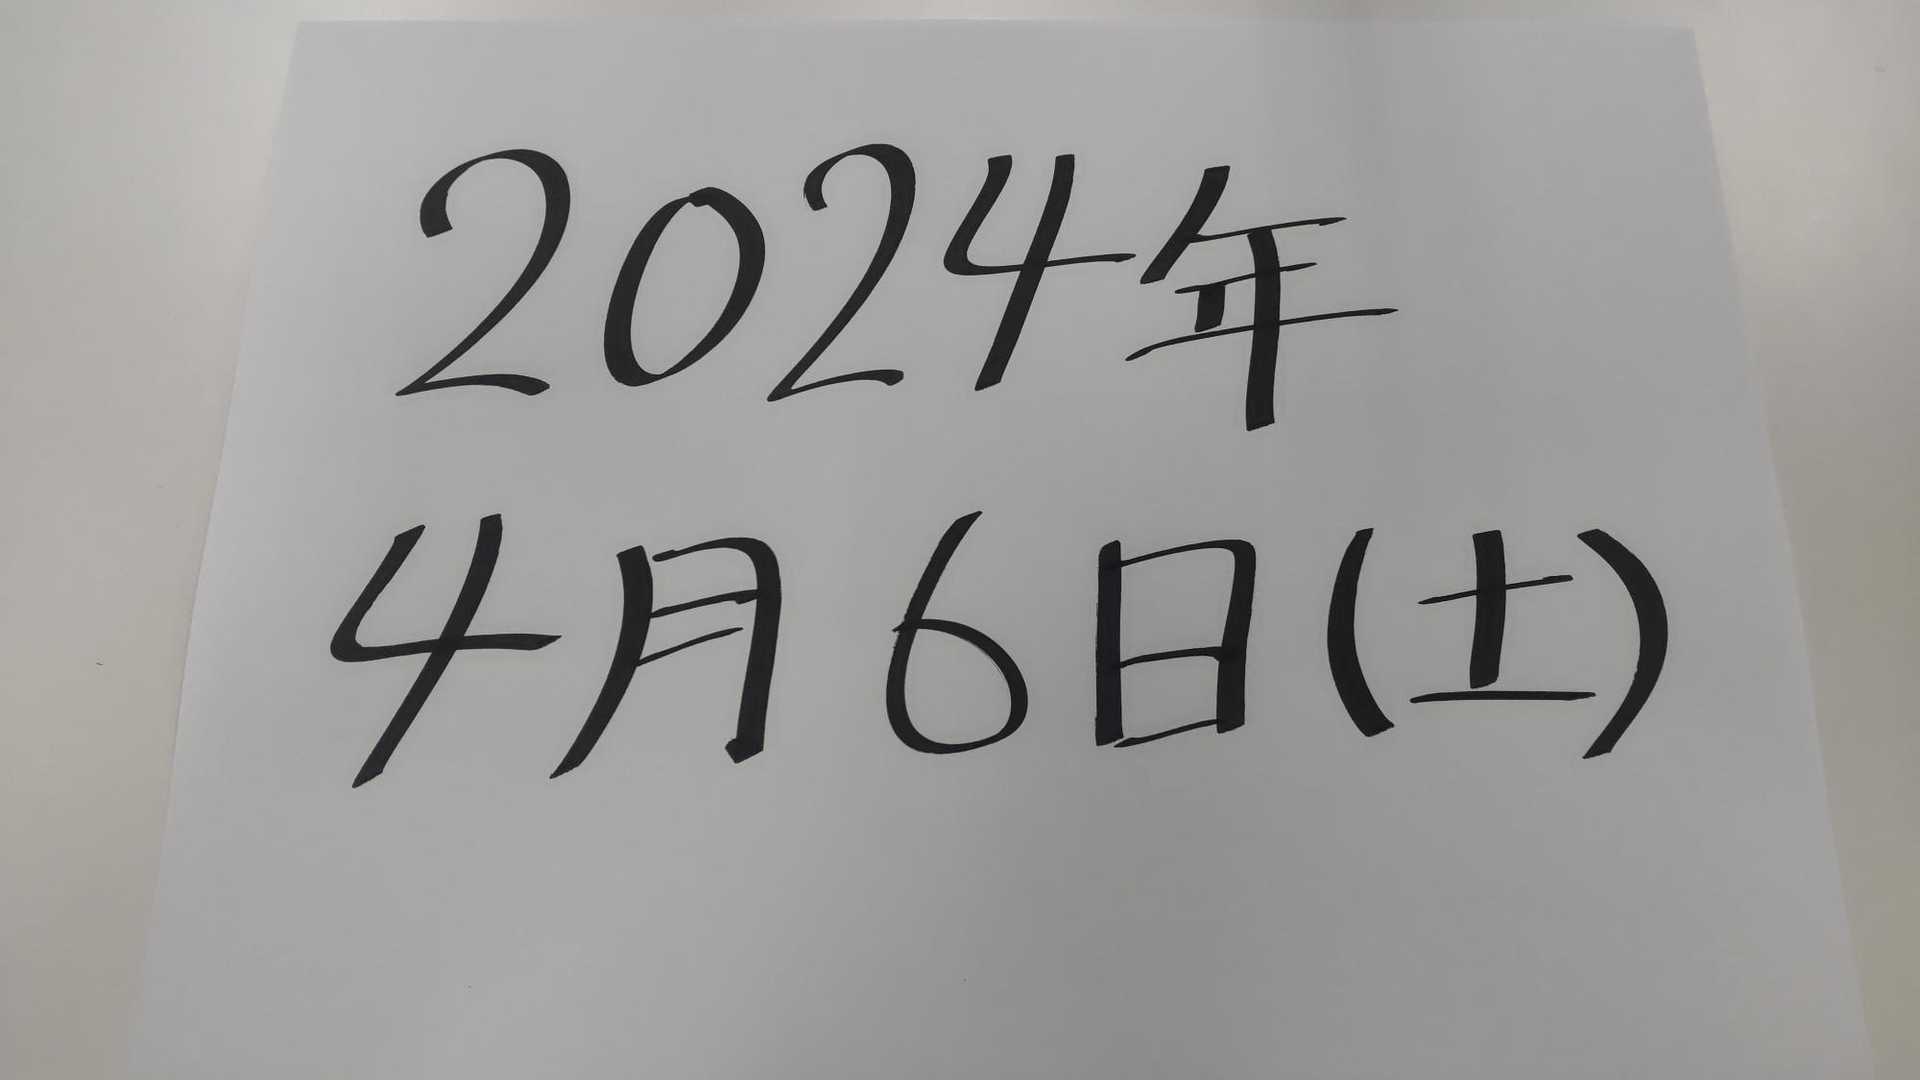 2024年
4月6日(土)